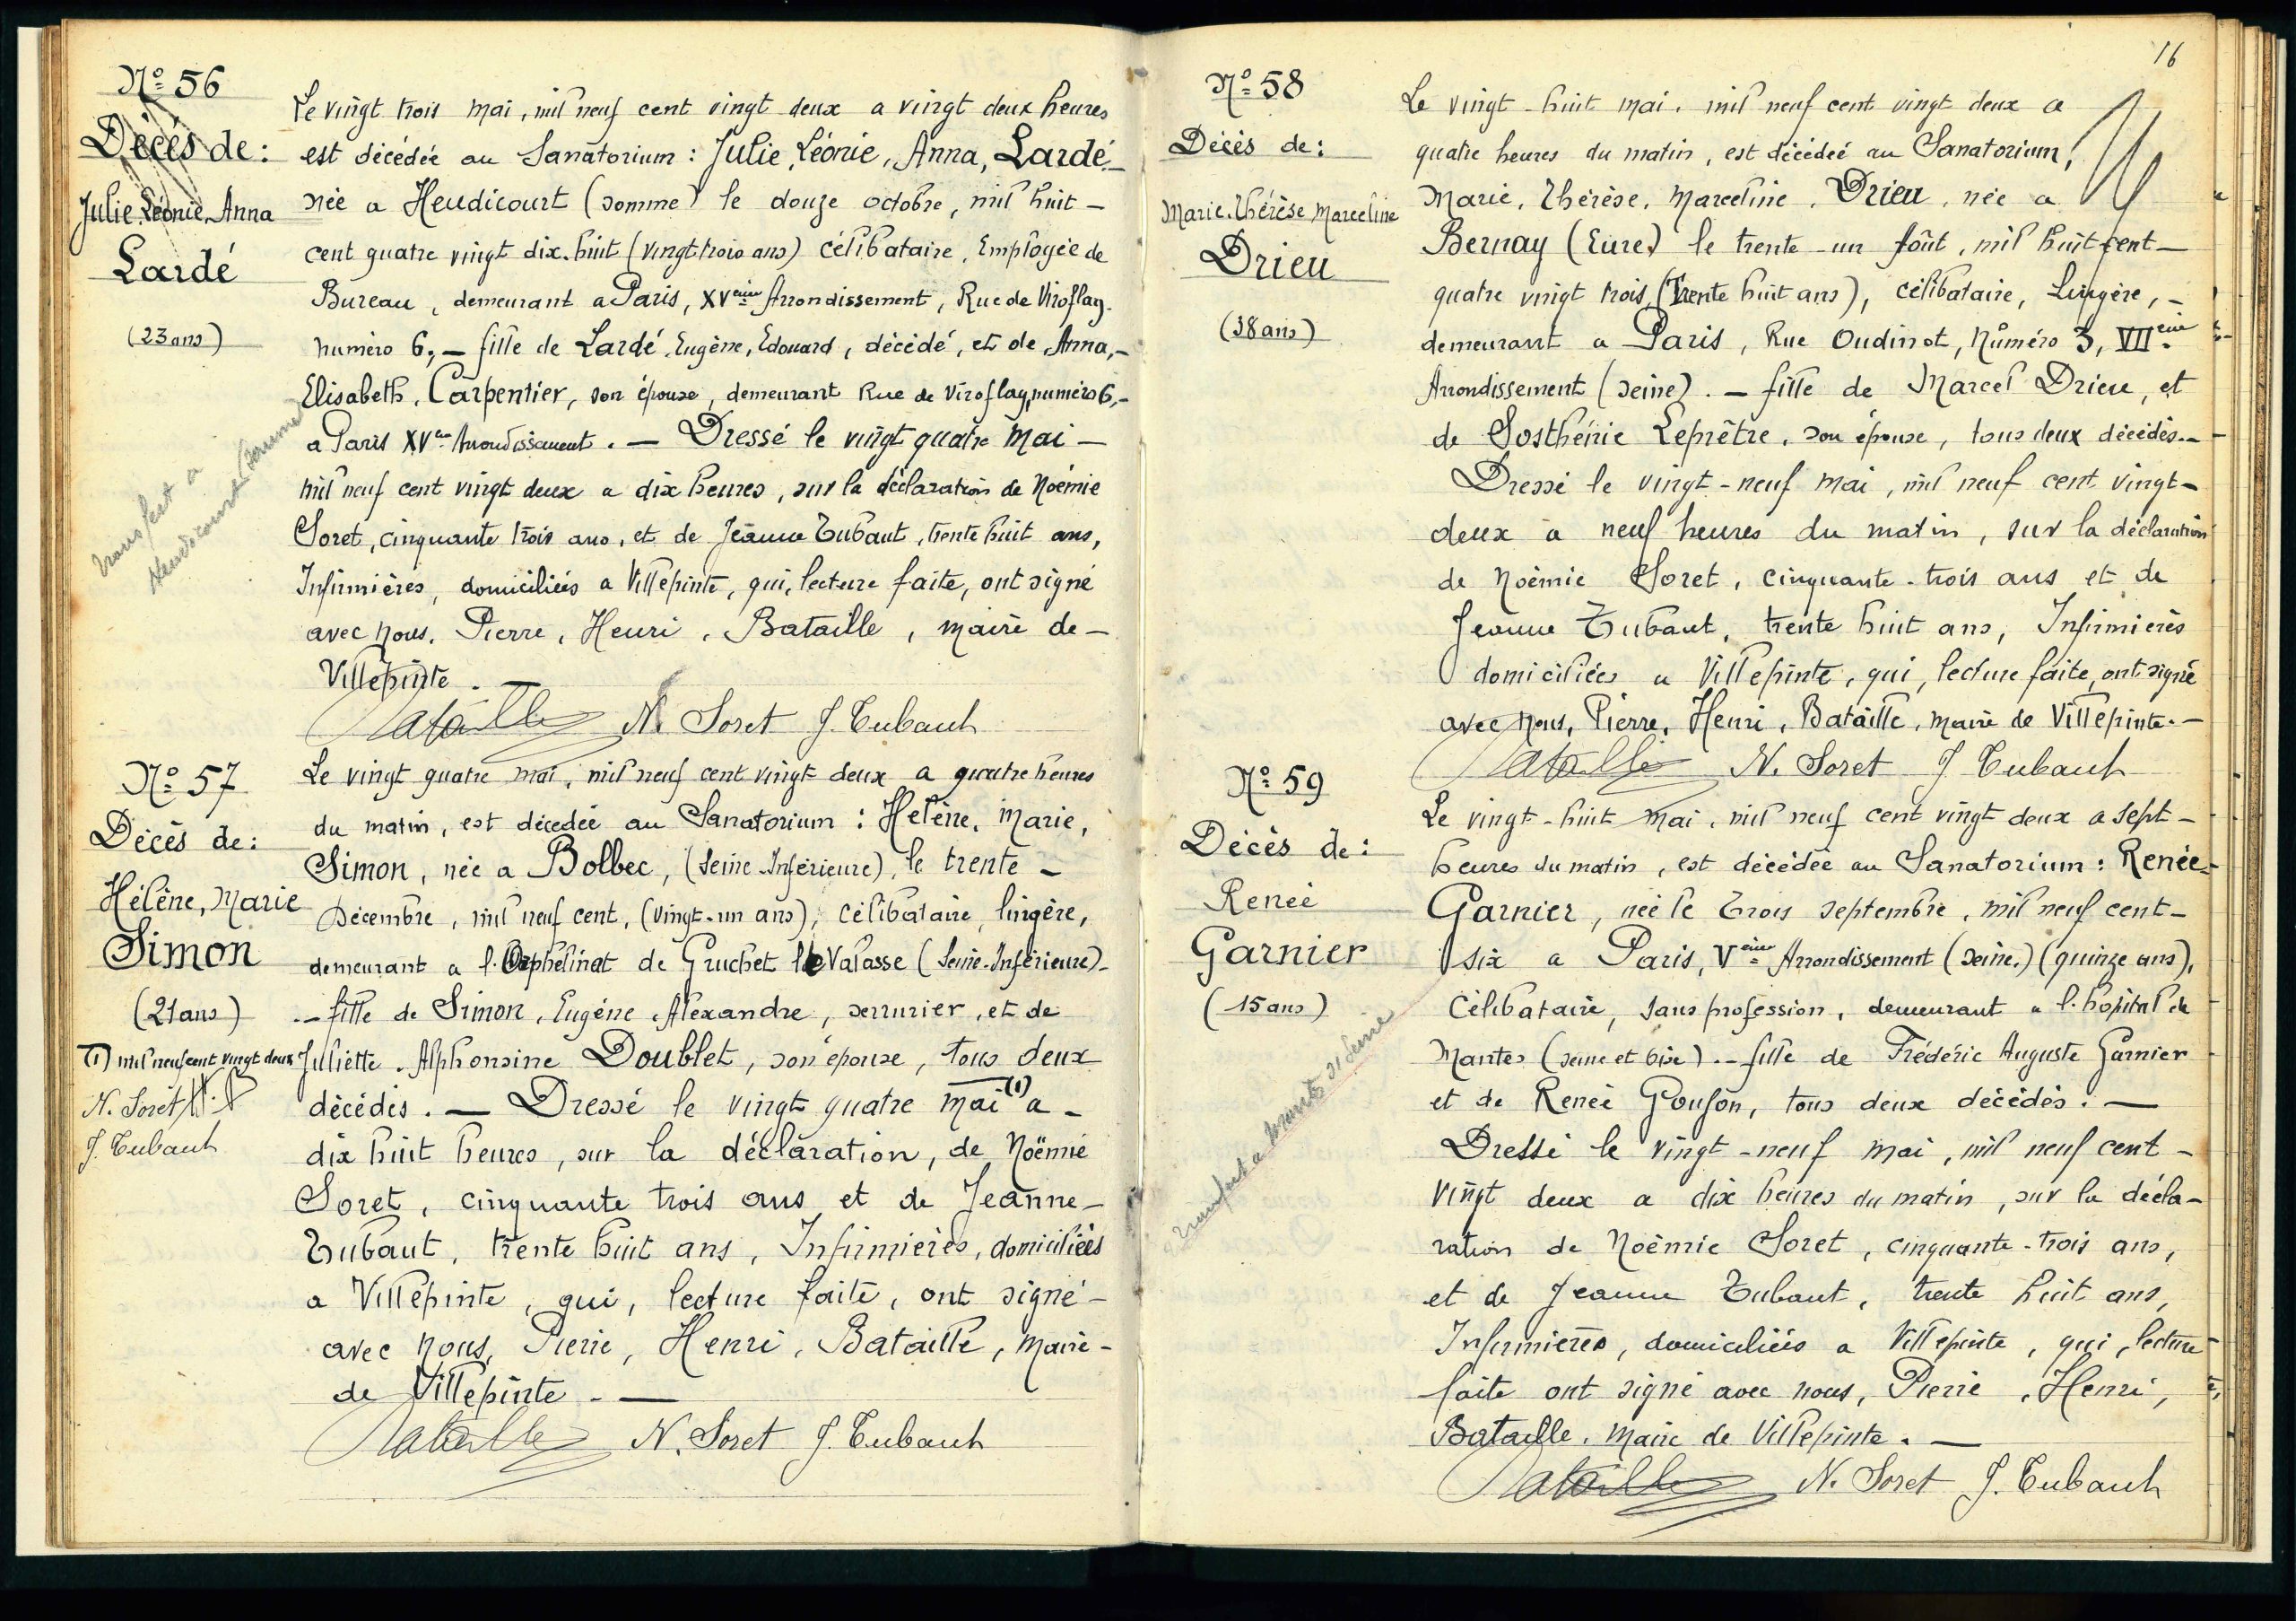 Nº 56
Décès de:
Julie, Léonie, Anna
Lardé
(23 ans)
transfert a
Heudicourt (Somme)
Le vingt trois mai, mil neuf cent vingt deux a vingt deux heures
est décédée au Sanatorium : Julie, Léonie, Anna, Lardé -
née a Heudicourt (Somme) le douze octobre, mil huit -
cent quatre vingt dix-huit (vingt trois ans) célibataire, Employée de
Bureau, demeurant a Paris, XVème Arrondissement, Rue de Viroflay.
numéro 6, - fille de Lardé, Eugène, Edouard, décédé, et de Anna, -
Elisabeth, Carpentier, son épouse, demeurant Rue de Viroflay, numéro 6, -
a Paris XVe Arrondissement. — Dressé le vingt quatre Mai -
mil neuf cent vingt deux a dix heures, sur la déclaration de Noémie
Soret, cinquante trois ans, et de Jeanne Tubaut, trente huit ans,
Infirmières, domiciliées a Villepinte, qui, lecture faite, ont signé
avec nous, Pierre, Henri, Bataille, maire de -
Villepinte. —
Bataille N. Soret J. Tubaut
Nº 57
Décès de:
Hélène, Marie
Simon
(21 ans)
(1) mil neuf cent vingt deux
N. Soret H. B
J. Tubaut
Le vingt quatre mai, mil neuf cent vingt deux a quatre heures
du matin, est décédée au Sanatorium : Hélène, Marie,
Simon, née a Bolbec, (Seine-Inférieure), le trente -
Décembre, mil neuf cent, (vingt-un ans), célibataire, lingère,
demeurant a l'Orphelinat de Gruchet le Valasse (Seine-Inférieure) -
- fille de Simon, Eugène, Alexandre, serrurier, et de
Juliette, Alphonsine Doublet, son épouse, tous deux
décédés. — Dressé le vingt quatre mai (1) a -
dix huit heures, sur la déclaration, de Noëmie
Soret, cinquante trois ans et de Jeanne -
Tubaut, trente huit ans, Infirmières, domiciliées
a Villepinte, qui, lecture faite, ont signé -
avec nous, Pierre, Henri, Bataille, Maire -
de Villepinte - —
Bataille N. Soret J. Tubaut
16
Nº 58
Décès de:
Marie, Thérèse, Marceline
Drieu
(38 ans)
Le vingt-huit mai, mil neuf cent vingt deux a
quatre heures du matin, est décédée au Sanatorium,
Marie, Thérèse, Marceline, Drieu, née a
Bernay (Eure) le trente-un Août, mil huit cent -
quatre vingt trois, (Trente huit ans), célibataire, Lingère, -
demeurant a Paris, Rue Oudinot, Numéro 3, VIIème
Arrondissement (Seine). - fille de Marcel Drieu, et
de Sosthénie Leprêtre, son épouse, tous deux décédés. -
Dressé le vingt-neuf mai, mil neuf cent vingt -
deux à neuf heures du matin, sur la déclaration
de Noëmie Soret, cinquante-trois ans et de
Jeanne Tubaut, trente huit ans, Infirmières
domiciliées a Villepinte, qui, lecture faite, ont signé
avec nous, Pierre, Henri, Bataille, maire de Villepinte. -
Bataille N. Soret J. Tubaut
Nº 59
Décès de:
Renée
Garnier
(15 ans)
transfert a
Le vingt-huit mai, mil neuf cent vingt deux a sept -
heures du matin, est décédée au Sanatorium : Renée -
Garnier, née le trois septembre, mil neuf cent -
six a Paris, Vème Arrondissement (Seine.) (quinze ans),
Célibataire, sans profession, demeurant a l'hôpital de
Mantes (Seine et Oise). - fille de Frédéric Auguste Garnier
et de Renée Goujon, tous deux décédés. —
Dressé le vingt-neuf mai, mil neuf cent -
vingt deux a dix heures du matin, sur la décla-
ration de Noëmie Soret, cinquante-trois ans,
et de Jeanne Tubaut, trente huit ans,
Infirmières, domiciliées a Villepinte, qui, lecture
faite ont signé avec nous, Pierre, Henri,
Bataille, Maire de Villepinte. —
Bataille N. Soret J. Tubaut